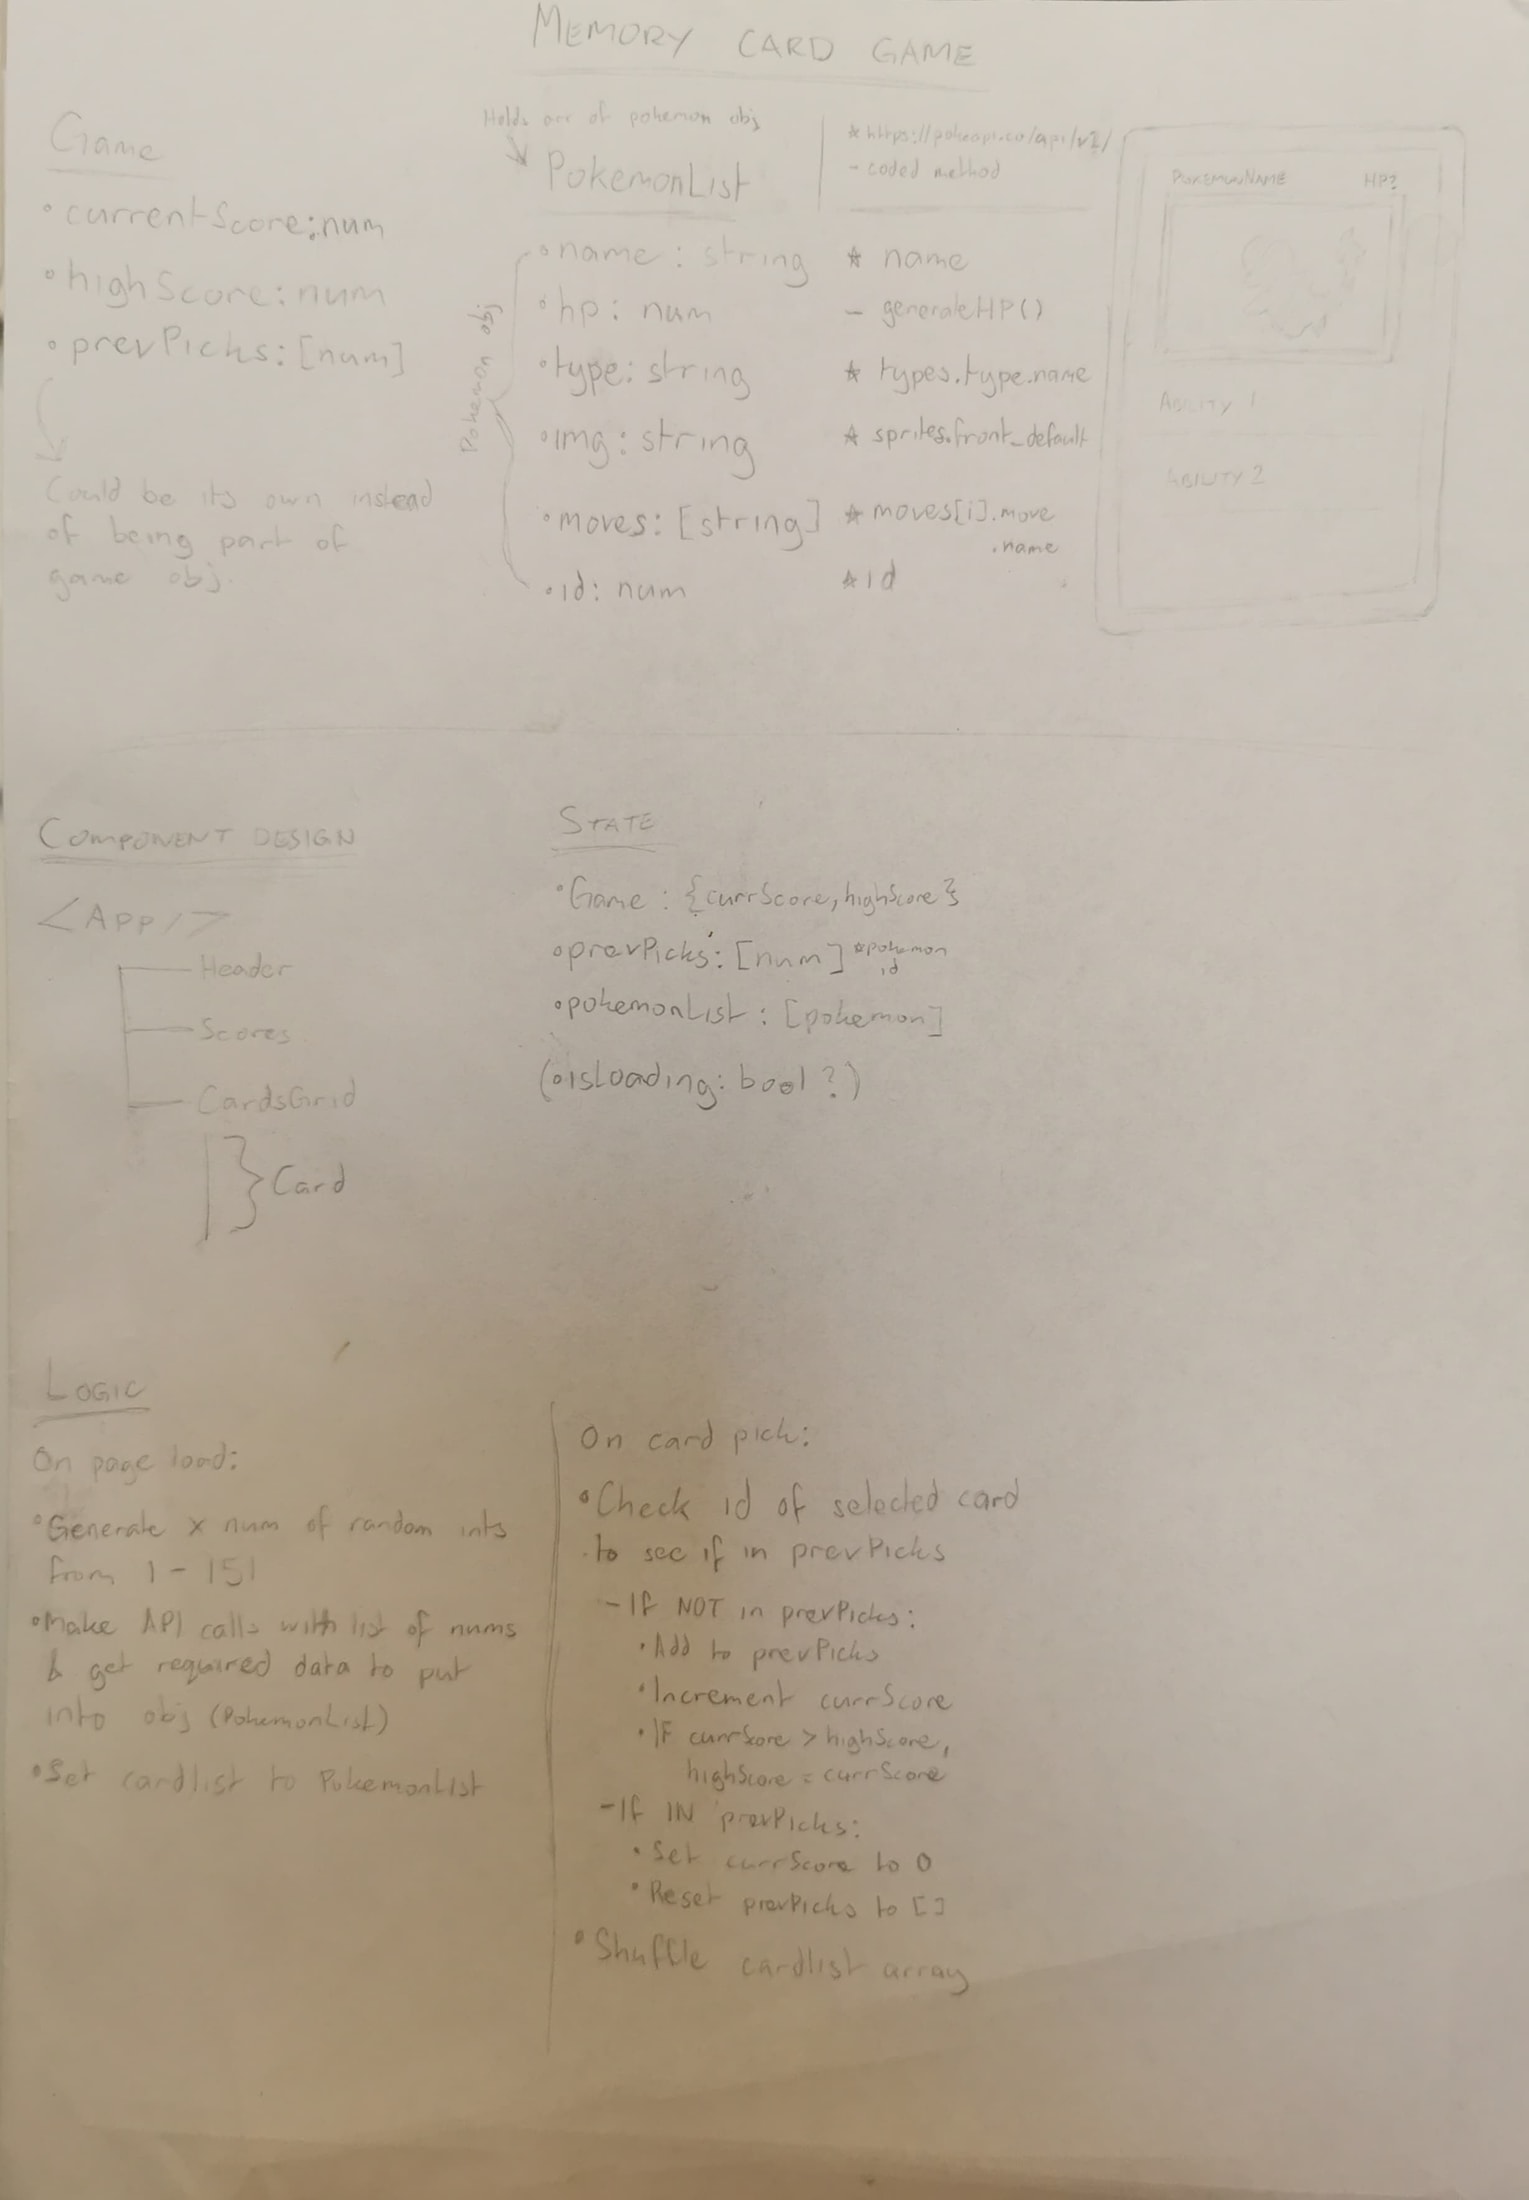 MEMORY CARD GAME
Game
• currentScore: num
• highScore: num
• prevPicks: [num]
Could be its own instead
of being part of
game obj.
Holds arr of pokemon obj
PokemonList
Pokemon obj
• name: string
• hp: num
• type: string
• img: string
• moves: [string]
• id: num
* https://pokeapi.co/api/v2/
- coded method
* name
- generateHP()
* types.type.name
* sprites.front_default
* moves[i].move
.name
* id
POKEMONNAME HP?
ABILITY 1
ABILITY 2
COMPONENT DESIGN
<APP/>
Header
Scores
CardsGrid
} Card
STATE
• Game: {currScore, highScore}
• prevPicks: [num] *pokemon
id
• pokemonList: [pokemon]
(• isLoading: bool?)
LOGIC
On page load:
• Generate x num of random ints
from 1 - 151
• Make API calls with list of nums
& get required data to put
into obj (PokemonList)
• Set cardlist to PokemonList
On card pick:
• Check id of selected card
to see if in prevPicks
- If NOT in prevPicks:
• Add to prevPicks
• Increment currScore
• IF currScore > highScore,
highScore = currScore
- If IN prevPicks:
• Set currScore to 0
• Reset prevPicks to []
• Shuffle cardlist array